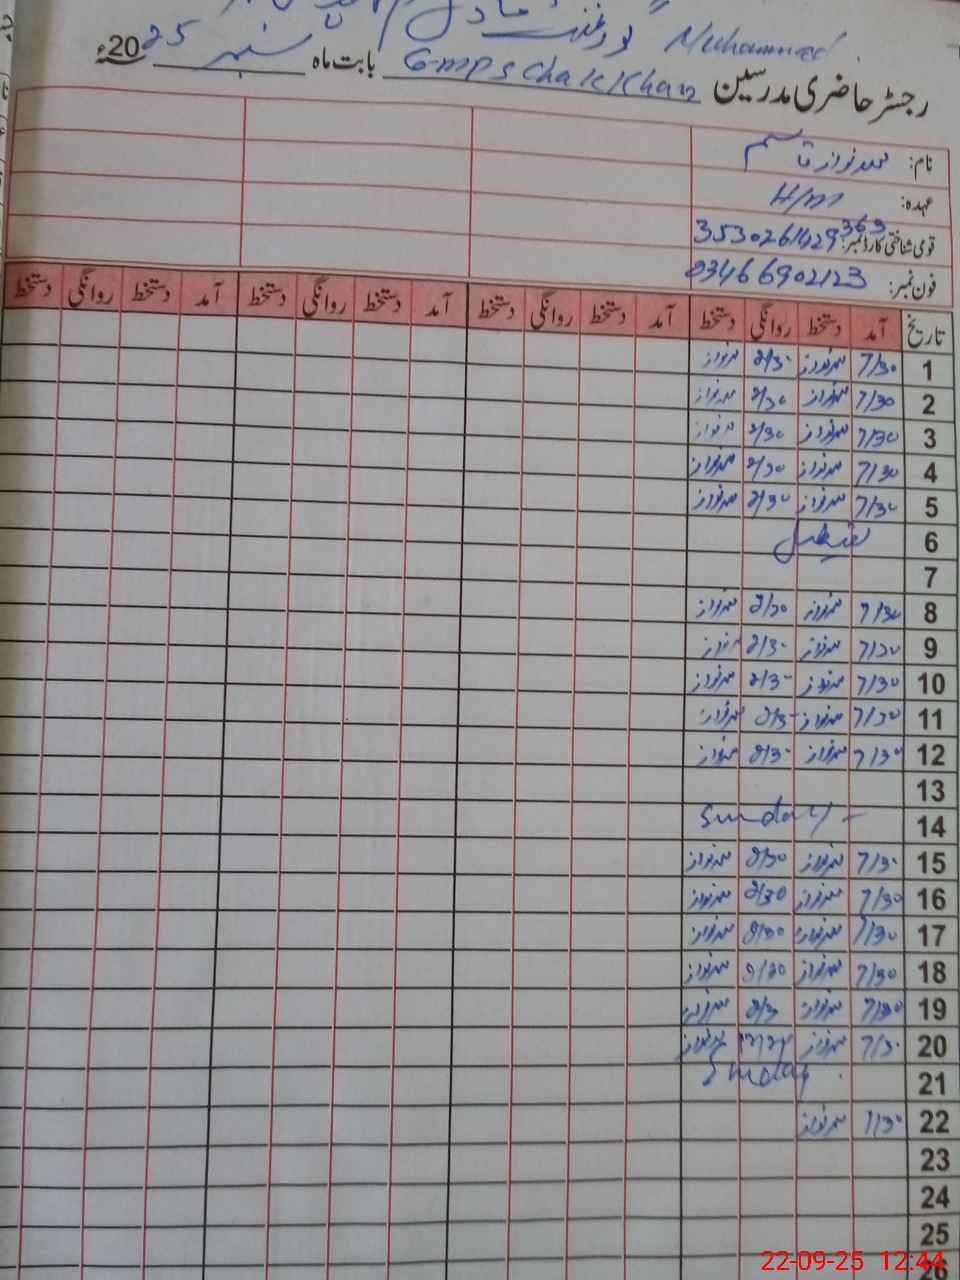 Muhammad
رجسٹر حاضری مدرسین Gmps Chak Khan بابت ماہ ستمبر 2025ء
نام: محمد نواز قاسم
عہدہ: H/m
قومی شناختی کارڈ نمبر: 3530261429363
فون نمبر: 03466902123
تاریخ آمد دستخط روانگی دستخط آمد دستخط روانگی دستخط آمد دستخط روانگی دستخط آمد دستخط روانگی دستخط
1 7/30 محمد نواز 2/30 محمد نواز
2 7/30 محمد نواز 2/30 محمد نواز
3 7/30 محمد نواز 2/30 محمد نواز
4 7/30 محمد نواز 2/30 محمد نواز
5 7/30 محمد نواز 2/30 محمد نواز
6
7
8 7/30 محمد نواز 2/30 محمد نواز
9 7/30 محمد نواز 2/30 محمد نواز
10 7/30 محمد نواز 2/30 محمد نواز
11 7/30 محمد نواز 2/30 محمد نواز
12 7/30 محمد نواز 2/30 محمد نواز
13
14 Sunday
15 7/30 محمد نواز 2/30 محمد نواز
16 7/30 محمد نواز 2/30 محمد نواز
17 7/30 محمد نواز 2/30 محمد نواز
18 7/30 محمد نواز 2/30 محمد نواز
19 7/30 محمد نواز 2/3 محمد نواز
20 7/30 محمد نواز محمد نواز
21 Sunday
22 7/30 محمد نواز
23
24
25
26
22-09-25 12:44